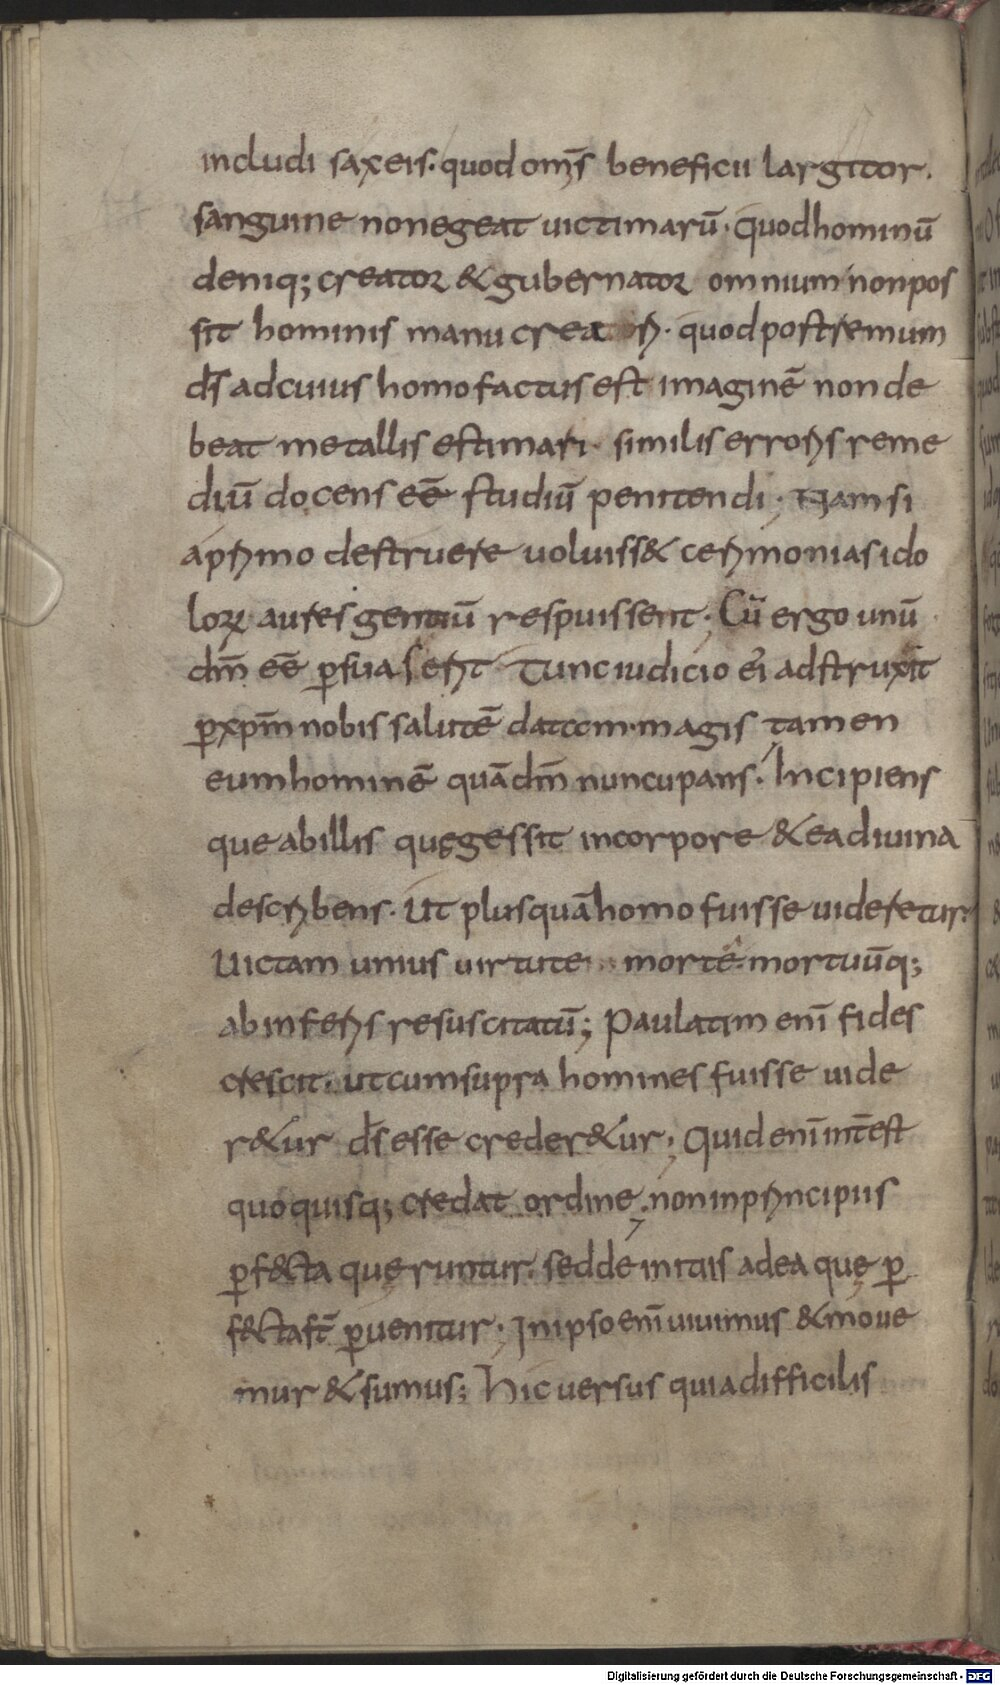 includi saxeis. quod om̄s beneficii largitor.
sanguine non egeat uictimarū. quod hominū
deniq; creator & gubernator omnium non pos
sit hominis manu crea quod postremum
ds̄ ad cuius homo factus est imaginē non de
beat metallis estimari. similis erroris reme
diū docens eē studiū penitendi; Nam si
a primo destruere uoluiss& cerimonias ido
lorꝝ aures gentiū respuissent; Cū ergo unū
dm̄ eē ꝑsuaserit. Tunc iudicio ei adstruxit
ꝑ xpm̄ nobis salutē datam. magis tamen
eum hominē quā dm̄ nuncupans. Incipiens
que ab illis quę gessit in corpore & ea diuina
describens. Ut plus quā homo fuisse uideretur.
Uictam unius uirtute mortē. mortuūq;
ab inferis resuscitatū; Paulatim enī fides
crescit. ut cum supra homines fuisse uide
r&ur ds̄ esse creder&ur; Quid enī int̄est
quo quisq; credat ordine. non in principiis
ꝑf&cta quęruntur. sed de initiis ad ea quę ꝑ
f&cta st̄ ꝑuenitur; In ipso enī uiuimus & moue
mur & sumus; Hic uersus quia difficilis
Digitalisierung gefördert durch die Deutsche Forschungsgemeinschaft - DFG